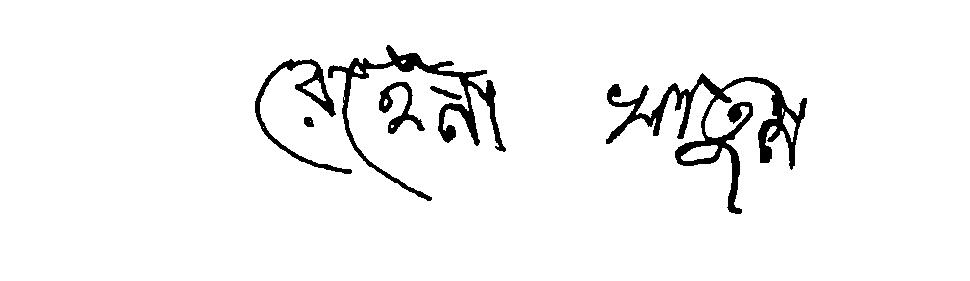 রেহেনা খাতুন